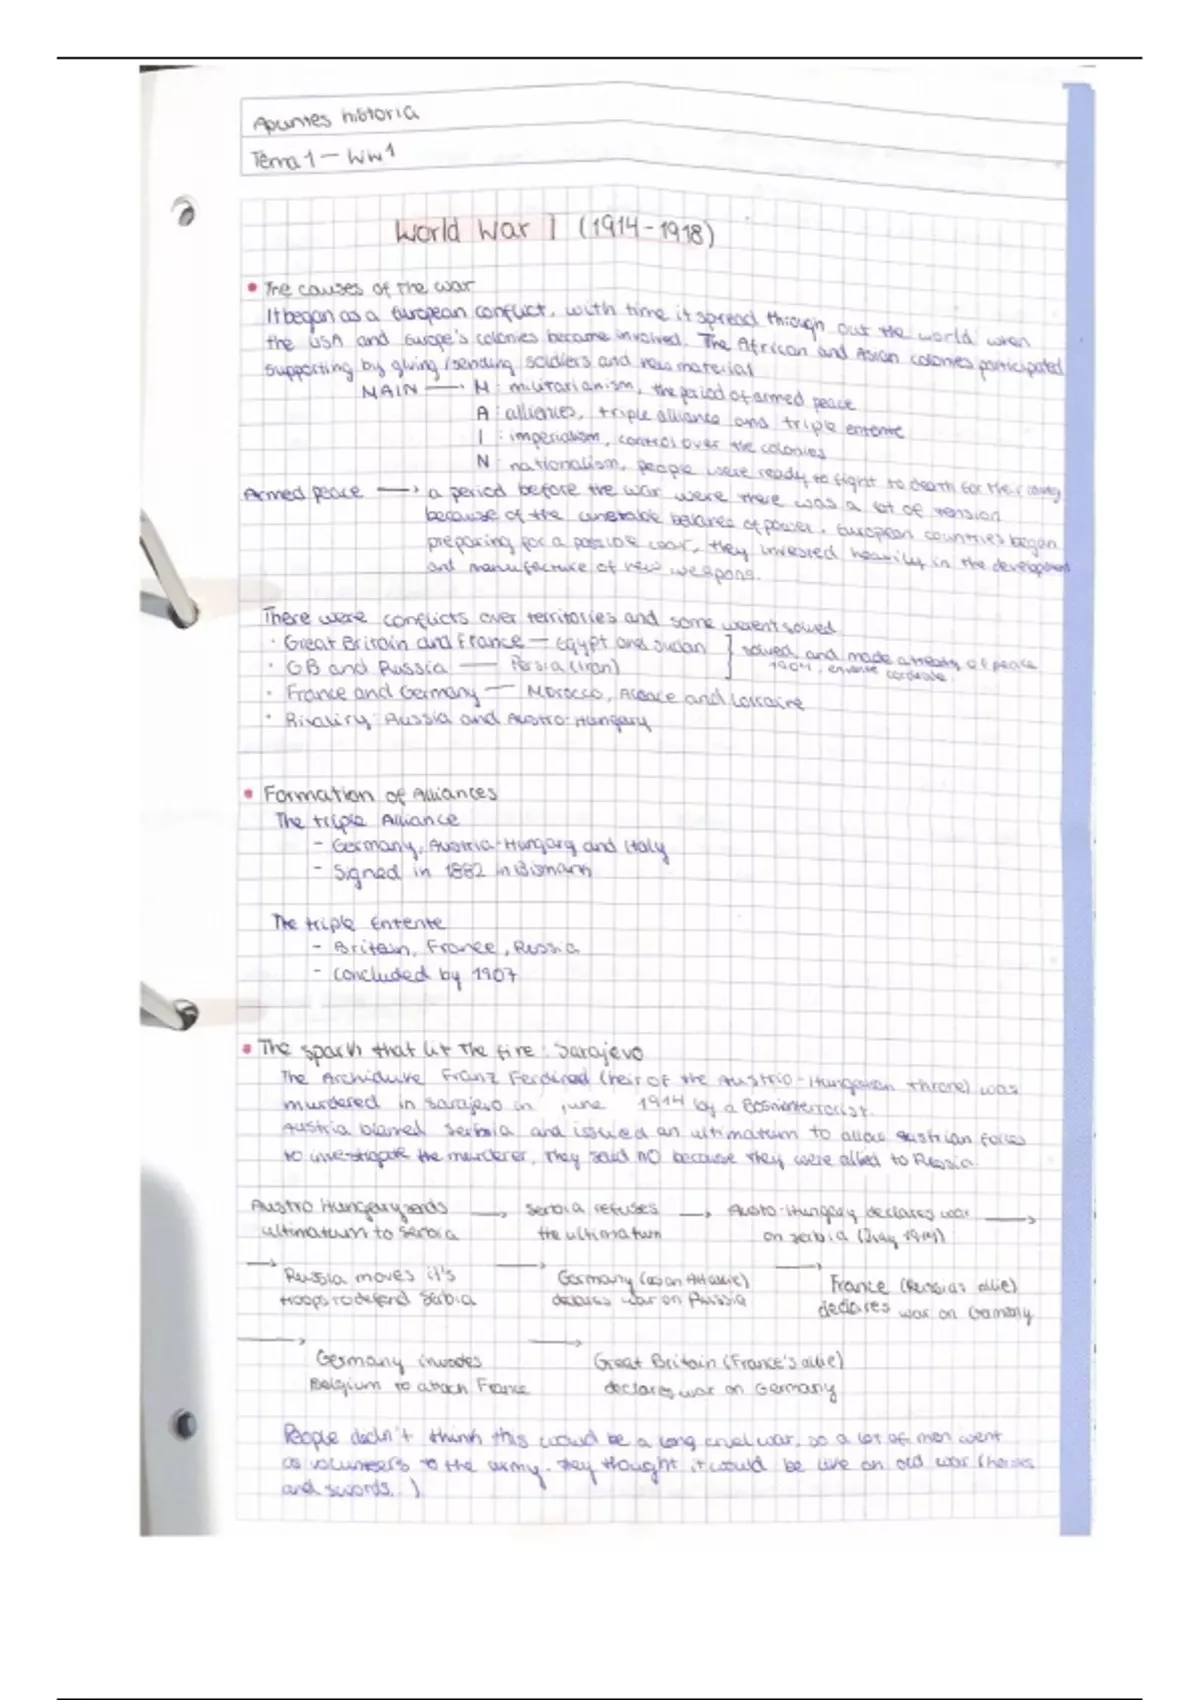 Apuntes historia
Tema 1 - WW1
World War 1 (1914-1918)
• The causes of the war
It began as a European conflict, with time it spread through out the world when
the USA and Europe's colonies became involved. The African and Asian colonies participated
supporting by giving/sending soldiers and new material
MAIN → M: militarianism, the period of armed peace
A: alliances, triple alliance and triple entente
I: imperialism, control over the colonies
N: nationalism, people were ready to fight to death for their country
Armed peace → a period before the war were there was a lot of tension
because of the unstable balance of power. European countries began
preparing for a possible war, they invested heavily in the development
and manufacture of new weapons.
There were conflicts over territories and some weren't solved
· Great Britain and France — Egypt and Sudan } solved and made a treaty of peace
· GB and Russia — Persia (Iran) 1904, entente cordiale.
· France and Germany — Morocco, Alsace and Lorraine
· Rivalry: Russia and Austro-Hungary
• Formation of Alliances
The triple Alliance
- Germany, Austria-Hungary and Italy
- Signed in 1882 in Bismann
The triple Entente
- Britain, France, Russia
- concluded by 1907
• The spark that lit the fire: Sarajevo
The Archiduke Franz Ferdinad (heir of the Austrio-Hungarian throne) was
murdered in Sarajevo in june 1914 by a Bosnian terrorist.
Austria blamed Serbia and issued an ultimatum to allow austrian forces
to investigate the murderer, they said no because they were allied to Russia.
Austro Hungary sends → Serbia refuses → Austo-Hungary declares war →
ultimatum to Serbia the ultimatum on Serbia (July 1914)
→ Russia moves it's → Germany (as an allie) → France (Russia's allie)
troops to defend Serbia declares war on Russia declares war on Germany
→ Germany invades → Great Britain (France's allie)
Belgium to attack France declares war on Germany
People dedn't think this would be a long cruel war, so a lot of men went
as volunteers to the army. They thought it would be live an old war (horses
and swords..)